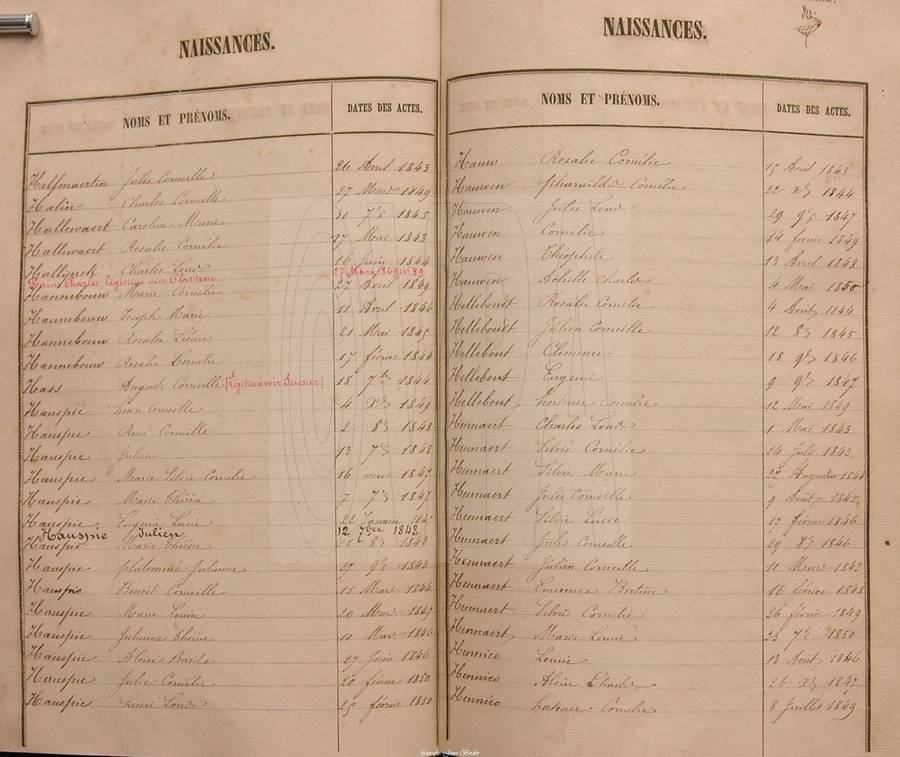 NAISSANCES.
NOMS ET PRÉNOMS. DATES DES ACTES.
Halsmaertin Jules Corneille 26 Avril 1843
Halin Charles Corneille 27 Mars 1849
Hallewaert Caroline Marie 30 7bre 1845
Hallewaert Rosalie Cornélie 17 Mai 1843
Charles Louis 16 Juin 1844
Hans Charles, légitimé voir 27 Mars 1849 n° 89
Hannebouw Marie Cornélie 27 Avril 1849
Hannebouw Joseph Marie 11 Avril 1846
Hannebouw Rosalie Léonie 21 Mai 1845
Hannebouw Rosalie Cornélie 17 février 1844
Hass Auguste Corneille (Légitimé voir Seussier) 18 7bre 1844
Hauspie Corneille 4 Xbre 1849
Hauspie René Corneille 2 8bre 1848
Hauspie Julien 13 7bre 1848
Hauspie Marie Silvie Cornélie 16 mai 1847
Hauspie Marie Thérèse 7 7bre 1847
Hauspie Eugenie Lucie 22 Janvier 1847
Hauspie Julien 12 7ber 1848
Hauspie Marie Thérèse 22 8bre 1843
Hauspie philomène Julienne 27 9bre 1843
Hauspie Benoit Corneille 15 Mars 1844
Hauspie Marie Louise 20 Mars 1845
Hauspie Julienne Thérèse 10 Mars 1846
Hauspie Aloise Basile 27 Juin 1846
Hauspie Julie Cornélie 20 février 1850
Hauspie henri Louis 25 février 1850
NAISSANCES.
NOMS ET PRÉNOMS. DATES DES ACTES.
Hauw Rosalie Cornélie 15 Avril 1843
Hauwen pharaïlde Cornélie 22 Xbre 1844
Hauwen Jules Louis 29 9bre 1847
Hauwen Cornelie 14 fevrier 1849
Hauwen Théophile 13 Avril 1848
Hauwen Achille Charles 4 Mai 1850
Hellebout Rosalie Cornélie 4 Août 1844
Hellebout Julien Corneille 12 8bre 1845
Hellebout Clemence 18 9bre 1846
Hellebout Eugenie 9 9bre 1847
Hellebout hortense Cornelie 12 Mai 1849
Hennaert Charles Louis 1 Mai 1843
Hennaert Silvie Cornélie 24 1843
Hennaert Silvie Marie 27 1844
Hennaert Jules Corneille 9 Août 1845
Hennaert Silvie Lucie 12 février 1846
Hennaert Jules Corneille 29 8bre 1846
Hennaert Julien Corneille 11 Mars 1847
Hennaert Emerence Bertine 16 février 1848
Hennaert Silvie Cornelie 26 février 1849
Hennaert Marie Léonie 23 7bre 1850
Hennico Leonie 13 Août 1846
Hennico Aloise Charles 26 Xbre 1847
Hennico hortense Cornelie 8 Juillet 1849